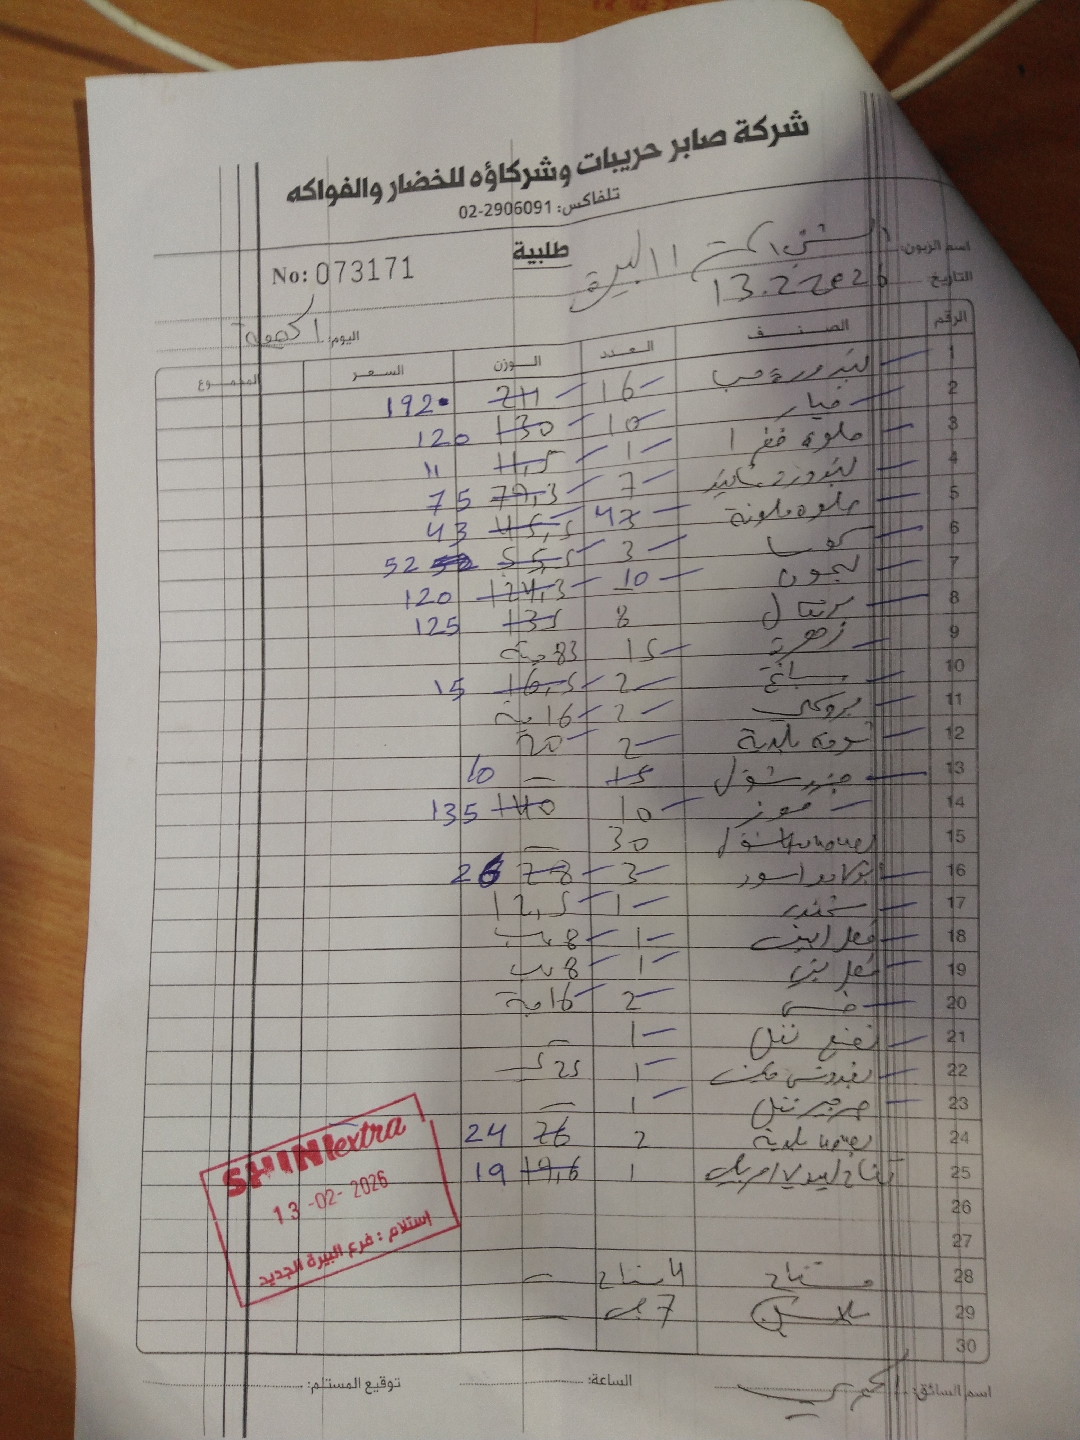 شركة صابر حريبات وشركاؤه للخضار والفواكه
تلفاكس: 02-2906091
طلبية
No: 073171
اسم الزبون:
التاريخ: 13.2.2026
اليوم: الجمعة
الرقم الصنف العدد الوزن السعر المجموع
1 بندورة حب 16 211 192
2 خيار 10 130 120
3 حلوة 1 11,5 11
4 بندورة 7 79,3 75
5 حلوة ملونة 43 45,5 43
6 كوسا 3 55,5 52
7 ليمون 10 124,3 120
8 برتقال 8 135 125
9 زهرة 15 83 حبة
10 سبانخ 2 16,5 15
11 بروكلي 2 16 حبة
12 ثومة بلدية 2 20
13 جزر شوال 15 — 10
14 موز 10 140 135
15 30 —
16 اسود 3 28 26
17 شمندر 1 12,5
18 فجل ابيض 1 8
19 فجل 1 8
20 خس 2 16 حبة
21 نعنع 1 —
22 بقدونس 1 25
23 جرجير 1 —
24 بلدية 2 26 24
25 تفاح 1 19,6 19
26
27
28 مشتاح 4 مشتاح —
29 7 —
30
SHINI extra
13-02-2026
إستلام : فرع البيرة الجديد
اسم السائق:
الساعة:
توقيع المستلم: